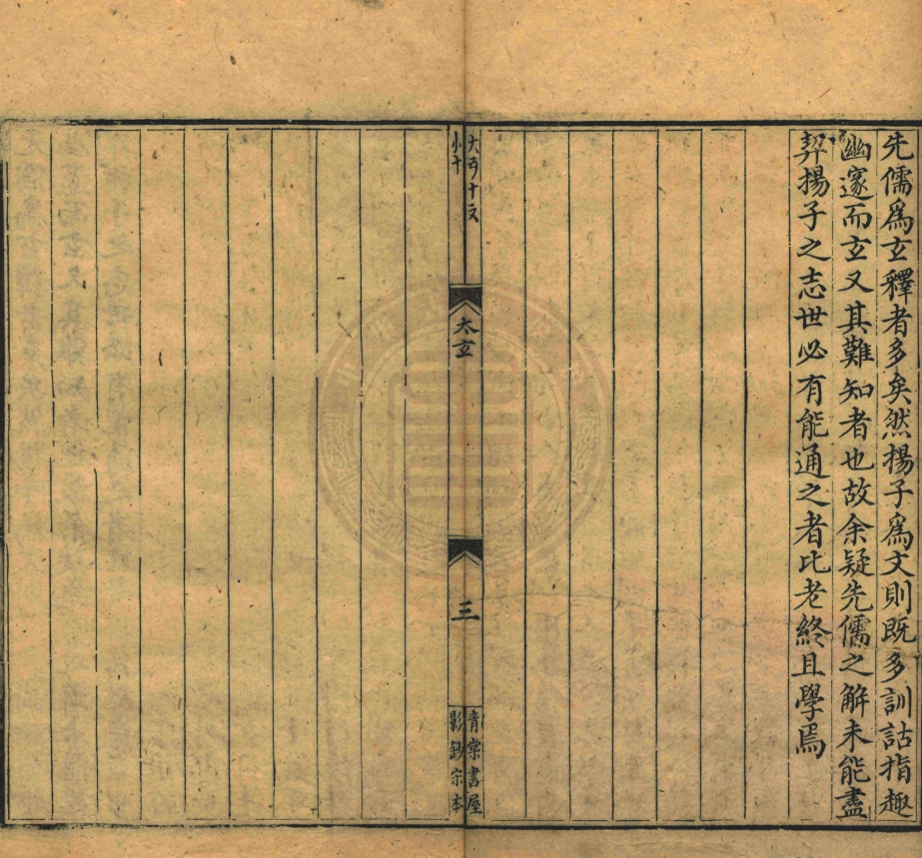 先儒爲玄釋者多矣然揚子爲文則既多訓詁指趣
幽邃而玄又其難知者也故余疑先儒之解未能盡
契揚子之志世必有能通之者比老終且學焉
小十
太玄
三
影鈔宗本